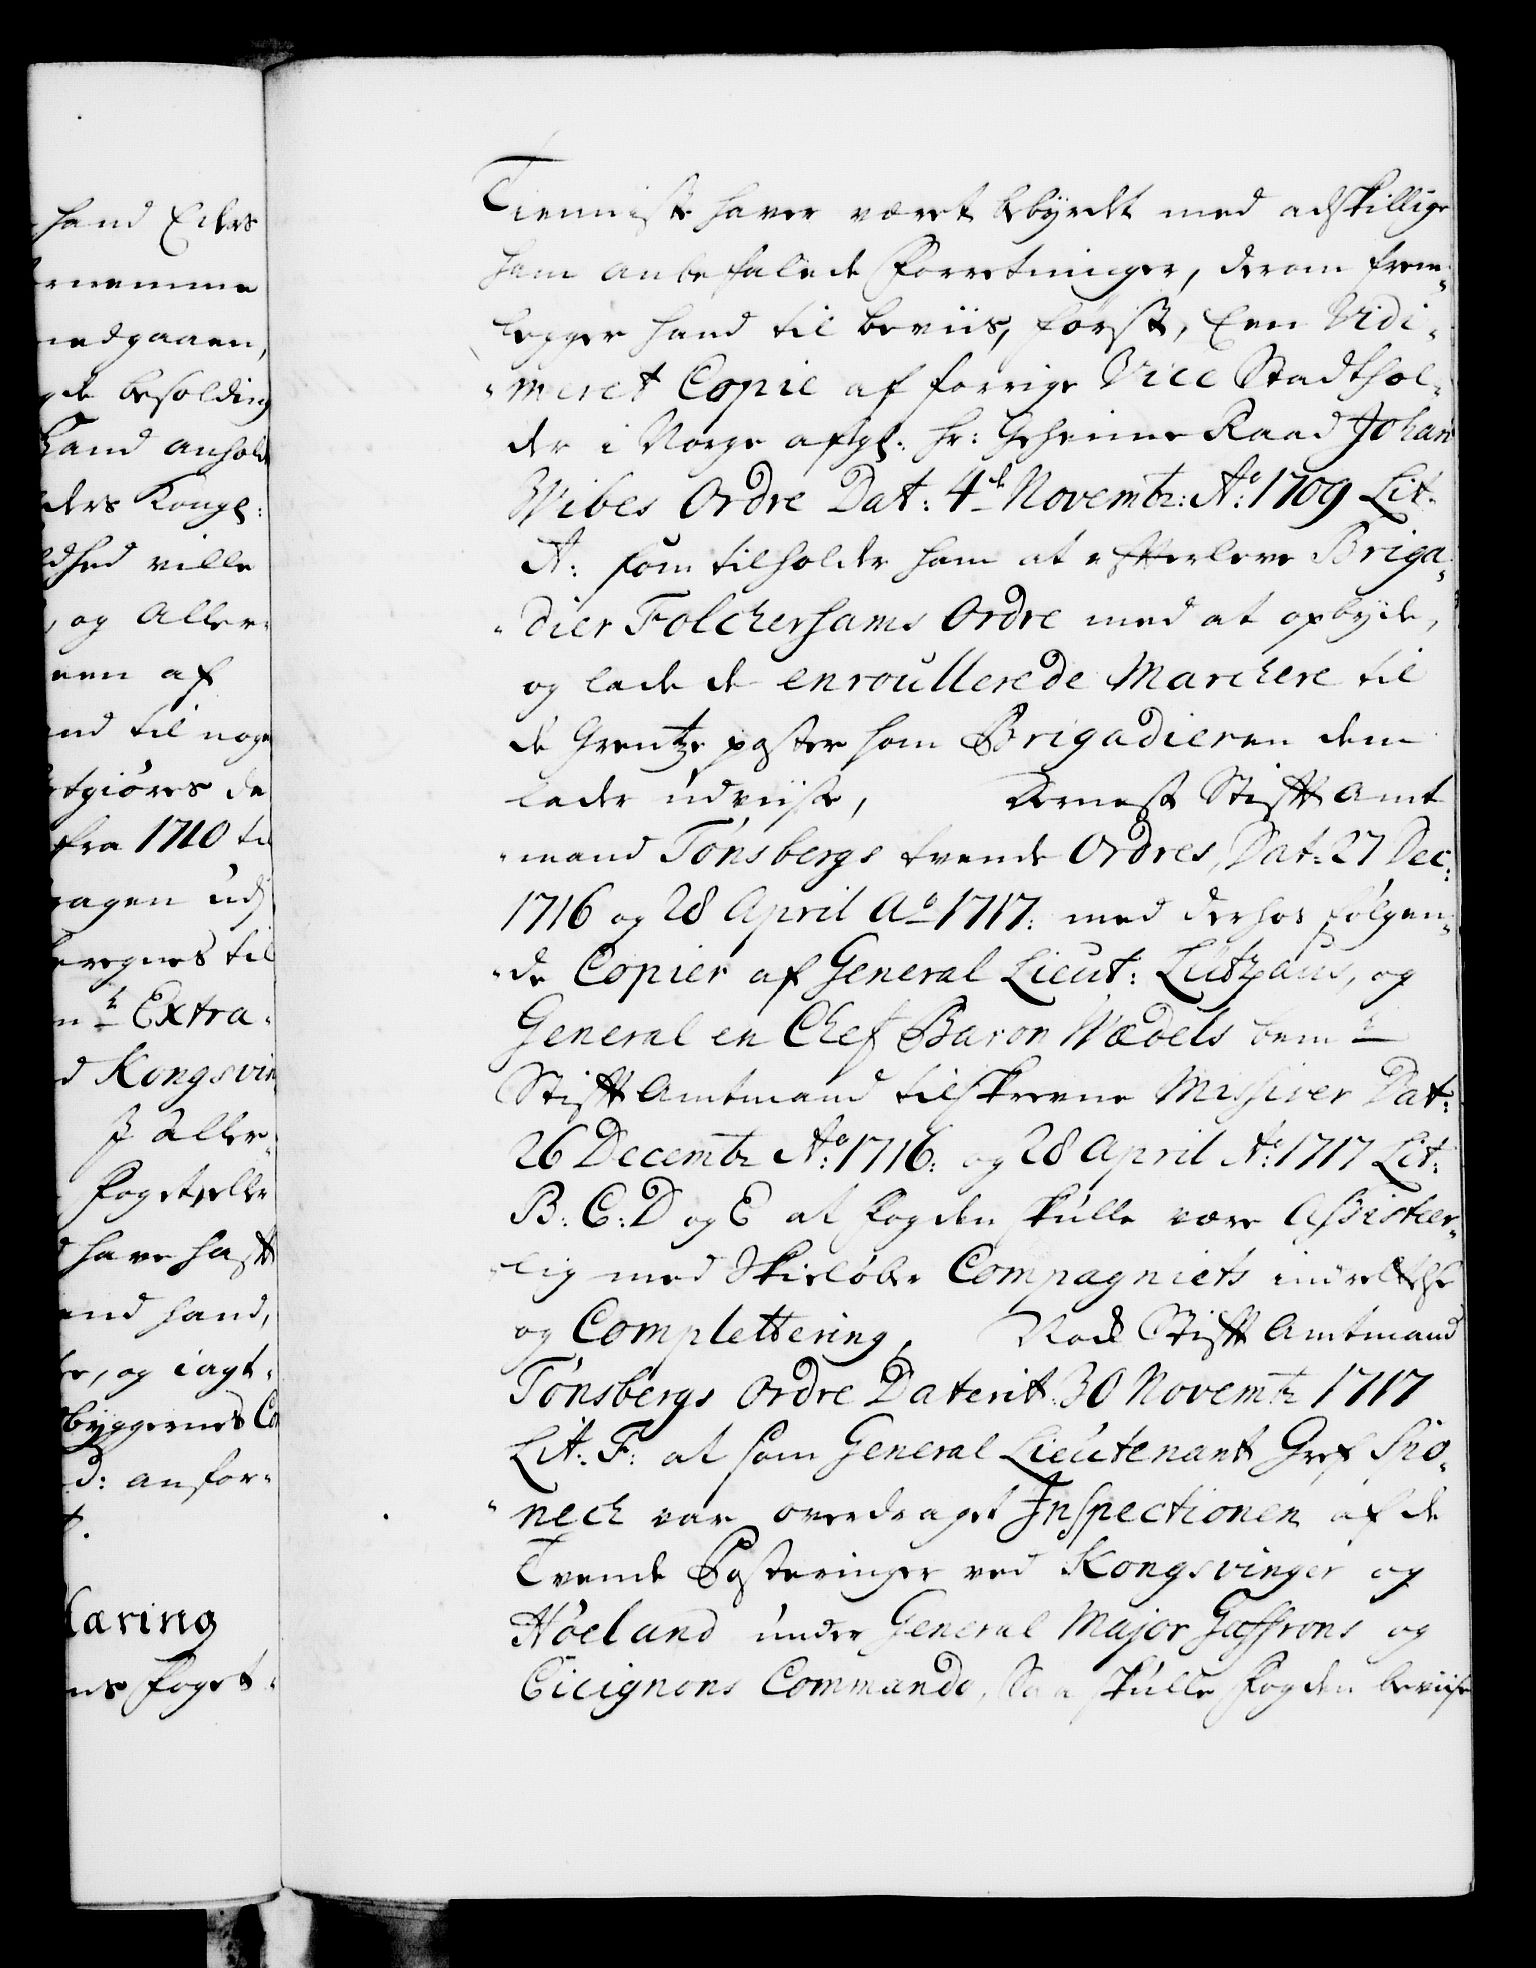 hand Eders
rnemme
nedgaaen,
gde besolding
Hand anhold
ders Kongl:
dhed ville
, og Aller-
een af
nd til nog
tgiøres de
fra 1710 til
gagen udj
beregnes til
Extra-
d Kongsvin
J Aller-
Foget, eller
d have hafft
end hand,
, og iagt-
byggernes Co
d: anfør-
t.
læring
ns Foget-
Tienniste haver været bebyrdt med adskillige
ham anbefalede Forretninger, derom frem-
legger hand til beviis, først, Een Vidi-
meret Copie af forrige Vice Stadthol-
der i Norge afgl: Hr: Geheime Raad Johan
Wibes Ordre Dat: 4de Novembr: Ao: 1709 Lit:
A: som tilholder ham at efterleve Briga-
dier Folchersams Ordre med at opbyde,
og lade de enroullerede Marchere til
de Grentze poster som Brigadieren dem
lader udviise, Dernest Stifft Amt
mand Tønsbergs tvende Ordres, Dat: 27 Dec:
1716 og 28 April Ao 1717: med derhos følgen-
de Copier af General Lieut: Lützaus, og
General en Chef Baron Wedels bemte
Stifft Amtmand tilskrevne Missiver Dat:
26 Decembr Ao: 1716: og 28 April Ao: 1717 Lit:
B: C: D og E at Fogden skulle være Assister-
lig med Skieløber Compagniets indrettelse
og Complettering, Nock Stifft Amtmand
Tønsbergs Ordre Daterit: 30 Novembr 1717
Lit: F: at som General Lieutenant Gref Spo-
neck var overdraget Inspectionen af de
Tvende Posteringer ved Kongsvinger og
Høeland under General Major Gaffrons og
Cicignons Commando, Saa skulle Fogden beviise